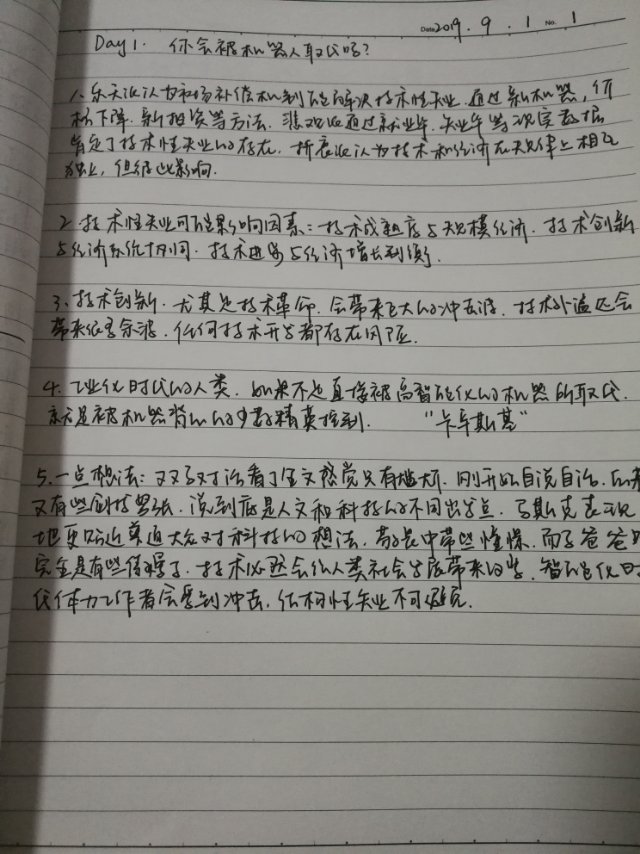 Date 2019. 9. 1 No. 1
Day 1. 你会被机器人取代吗?
1. 乐天派认为市场补偿机制可能解决技术性失业. 通过新机器, 价
格下降. 新投资等方法. 悲观派通过就业率. 失业率等现实数据
肯定了技术性失业的存在. 折衷派认为技术和经济在规律上相互
独立, 但彼此影响.
2. 技术性失业可能影响因素: 技术成熟度与规模经济. 技术创新
与经济系统协同. 技术进步与经济增长到衡.
3. 技术创新. 尤其是技术革命. 会带来巨大的冲击波. 技术外溢还会
带来很多余波. 任何技术开发都存在风险.
4. 工业化时代的人类. 如果不是直接被高智能化的机器所取代.
就是被机器背后的少数精英控制. "卡辛斯基"
5. 一点想法: 双马对话看了全文感觉只有尴尬. 刚开始自说自话. 后来
又有些剑拔弩张. 说到底是人文和科技的不同出发点. 马斯克表现
地更贴近普通大众对科技的想法, 带中带些憧憬. 而马爸爸
完全是有些得了. 技术必然会给人类社会发展带来改变. 智能化时
代体力工作者会受到冲击, 结构性失业不可避免.